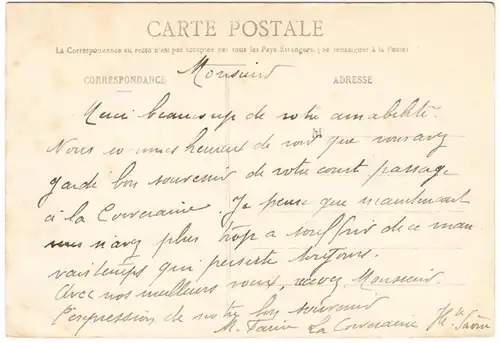 CARTE POSTALE
La Correspondance au recto n'est pas acceptée par tous les Pays Etrangers (se renseigner à la Poste)
CORRESPONDANCE
ADRESSE
Monsieur
Merci beaucoup de votre amabilité.
Nous sommes heureux de voir que vous avez
gardé bon souvenir de votre court passage
à la Corveraine. Je pense que maintenant
vous n'avez plus trop à souffrir de ce mau
vais temps qui persiste toujours.
Avec nos meilleurs voeux, recevez Monsieur
l'expression de notre bon souvenir
M. La Corveraine Hte Saône